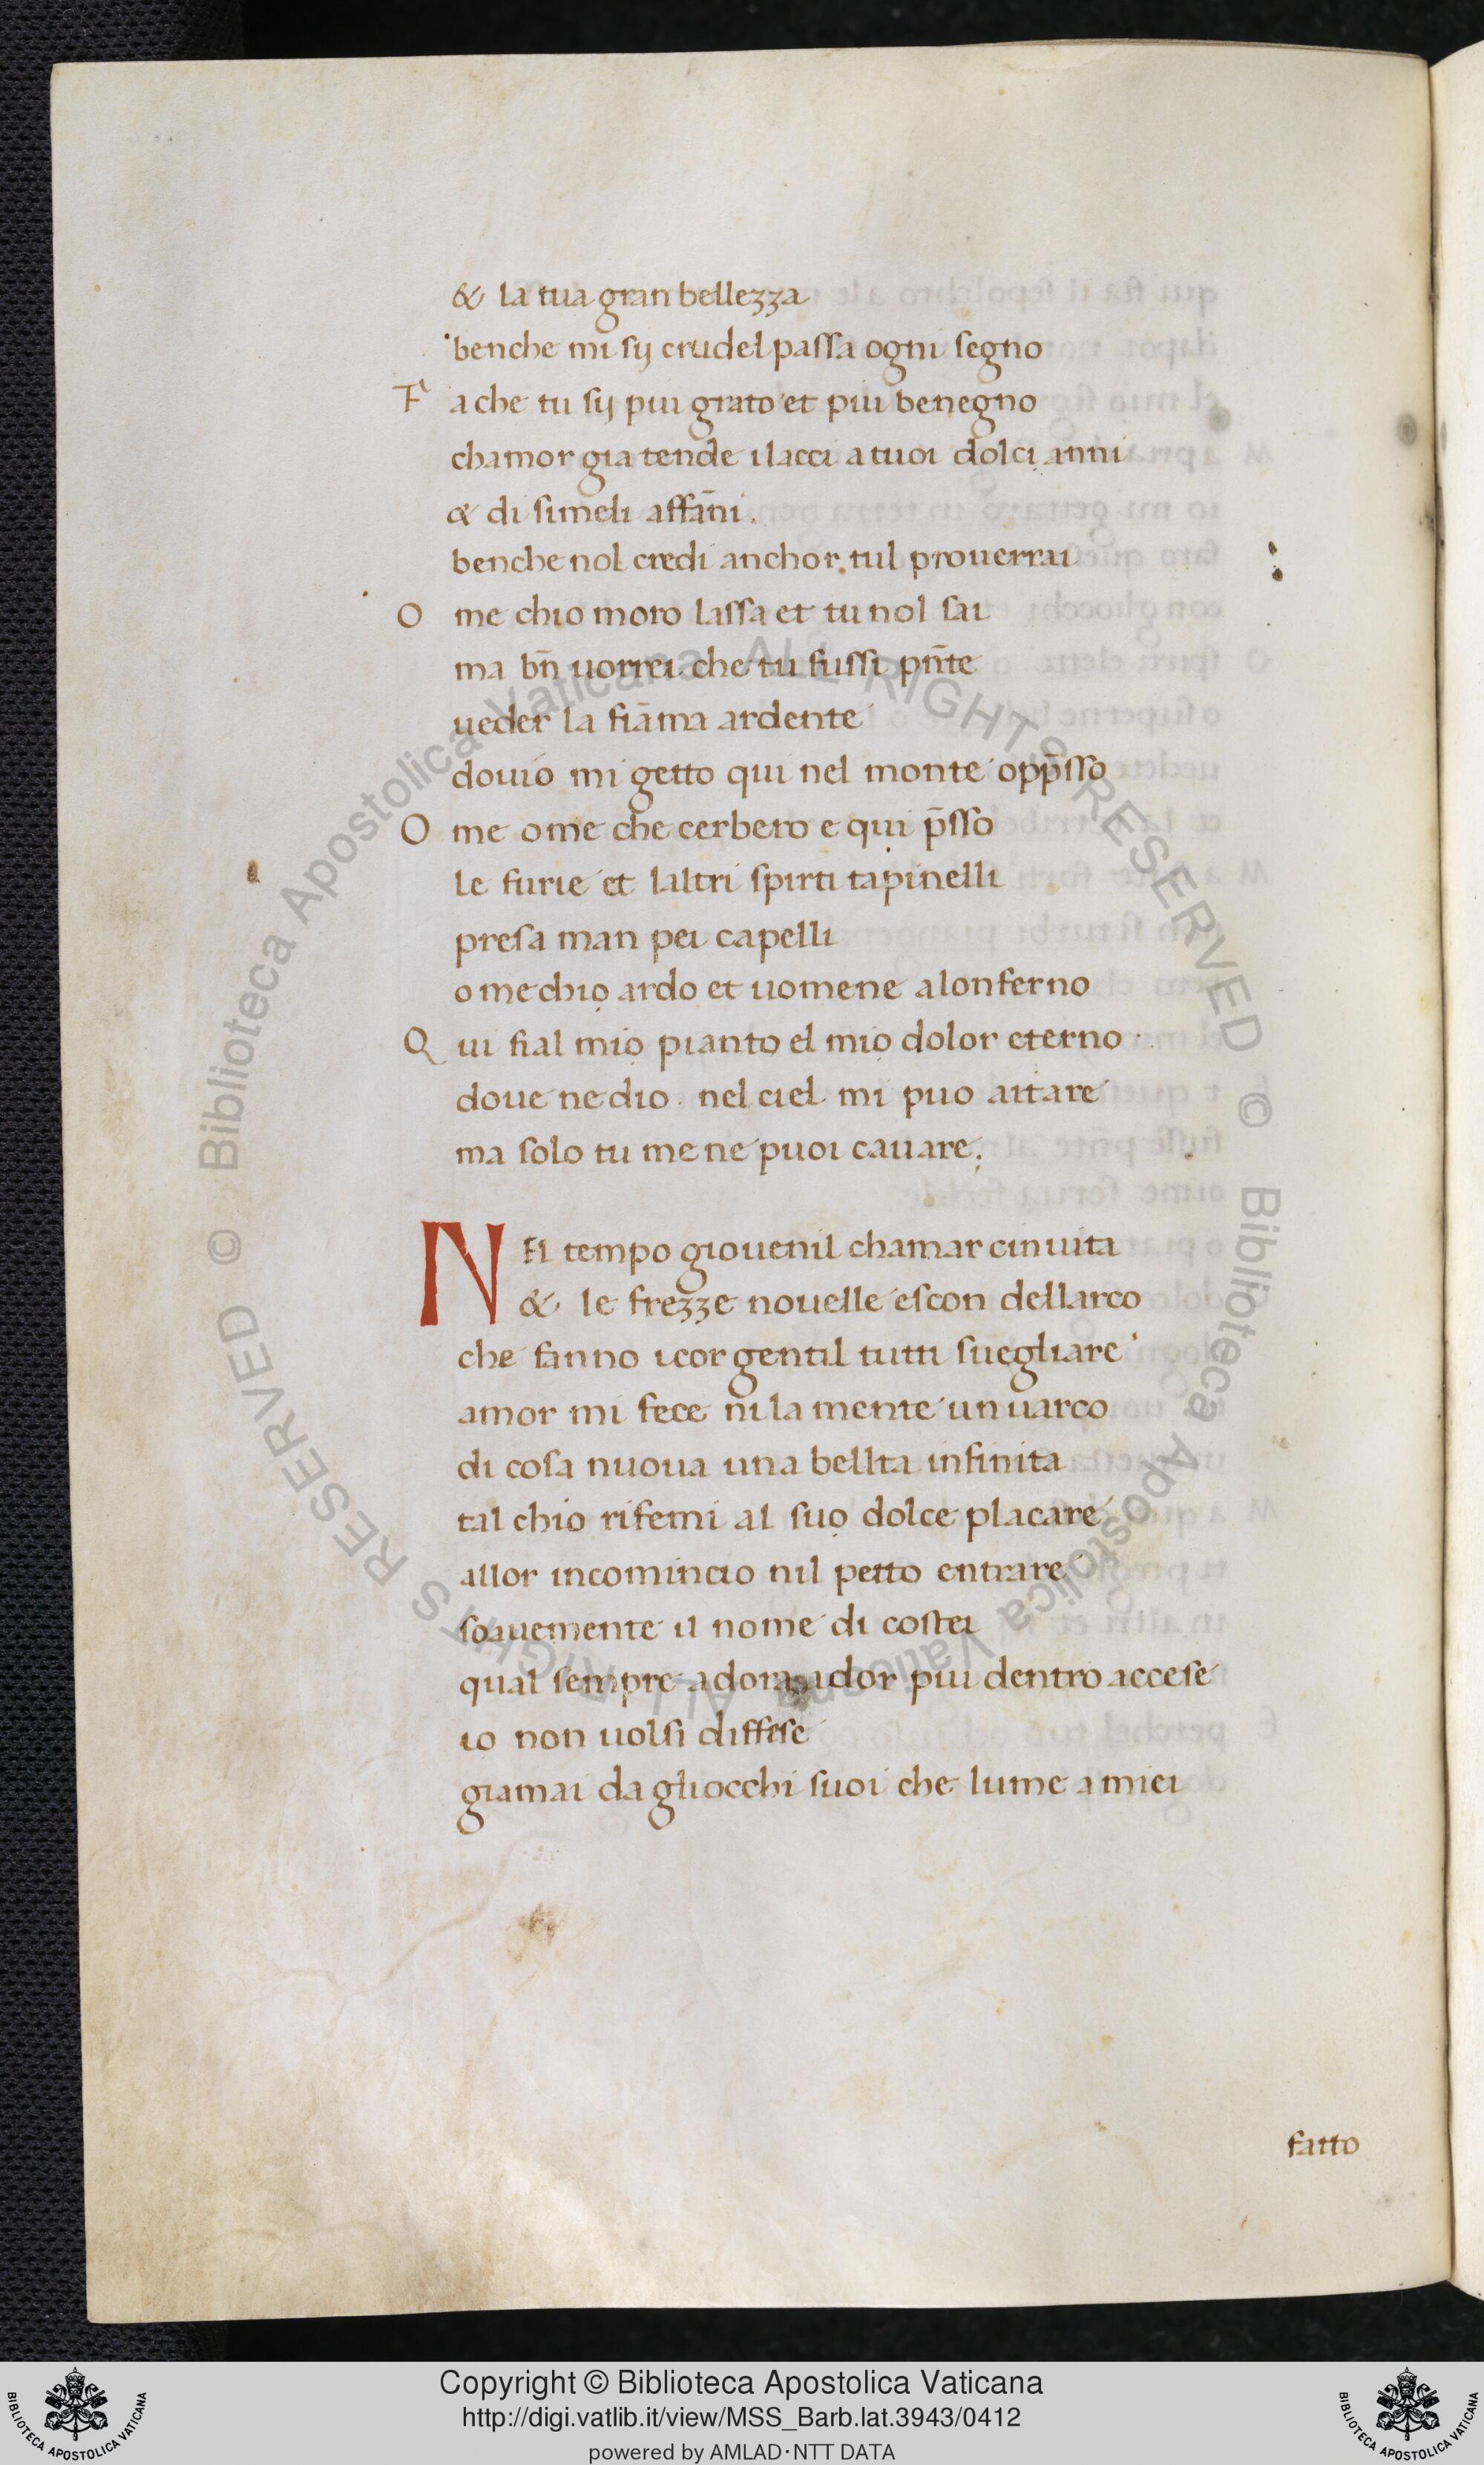 & la tua gran bellezza
benche mi sij crudel passa ogni segno
F a che tu sij piu grato et piu benegno
chamor gia tende i lacci a tuoi dolci anni
& di simeli affān̄i.
benche nol credi anchor, tul prouerrai
O me chio moro lassa et tu nol sai
ma bn̄ uorrei che tu fussi pn̄te
ueder la fiāma ardente
douio mi getto qui nel monte opp̄sso
O me ome che cerbero e qui p̄sso
le furie et laltri spirti tapinelli
presa man pei capelli
o me chio ardo et uomene a lonferno
Q ui fial mio pianto el mio dolor eterno
doue ne dio nel ciel mi puo aitare
ma solo tu me ne puoi cauare;
N El tempo giouenil chamar cinuita
& le frezze nouelle escon dellarco
che fanno i cor gentil tutti suegliare
amor mi fece ni la mente un uarco
di cosa nuoua una bellta infinita
tal chio rifemi al suo dolce placare
allor incomincio nil petto entrare
soauemente il nome di costei
qual sempre adora ador piu dentro accese
io non uolsi diffese
giamai da gliocchi suoi che lume a miei
fatto
Copyright © Biblioteca Apostolica Vaticana
http://digi.vatlib.it/view/MSS_Barb.lat.3943/0412
powered by AMLAD·NTT DATA
BIBLIOTECA APOSTOLICA VATICANA
BIBLIOTECA APOSTOLICA VATICANA
Biblioteca Apostolica Vaticana ALL RIGHTS RESERVED ©
Biblioteca Apostolica Vaticana ALL RIGHTS RESERVED ©